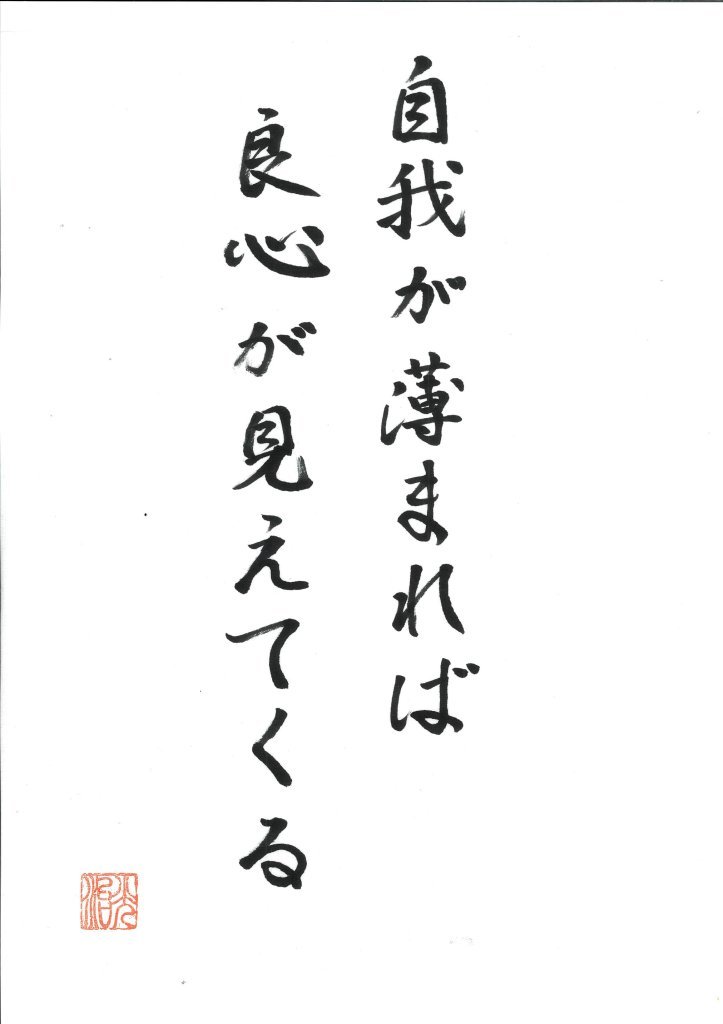 自我が薄まれば
良心が見えてくる